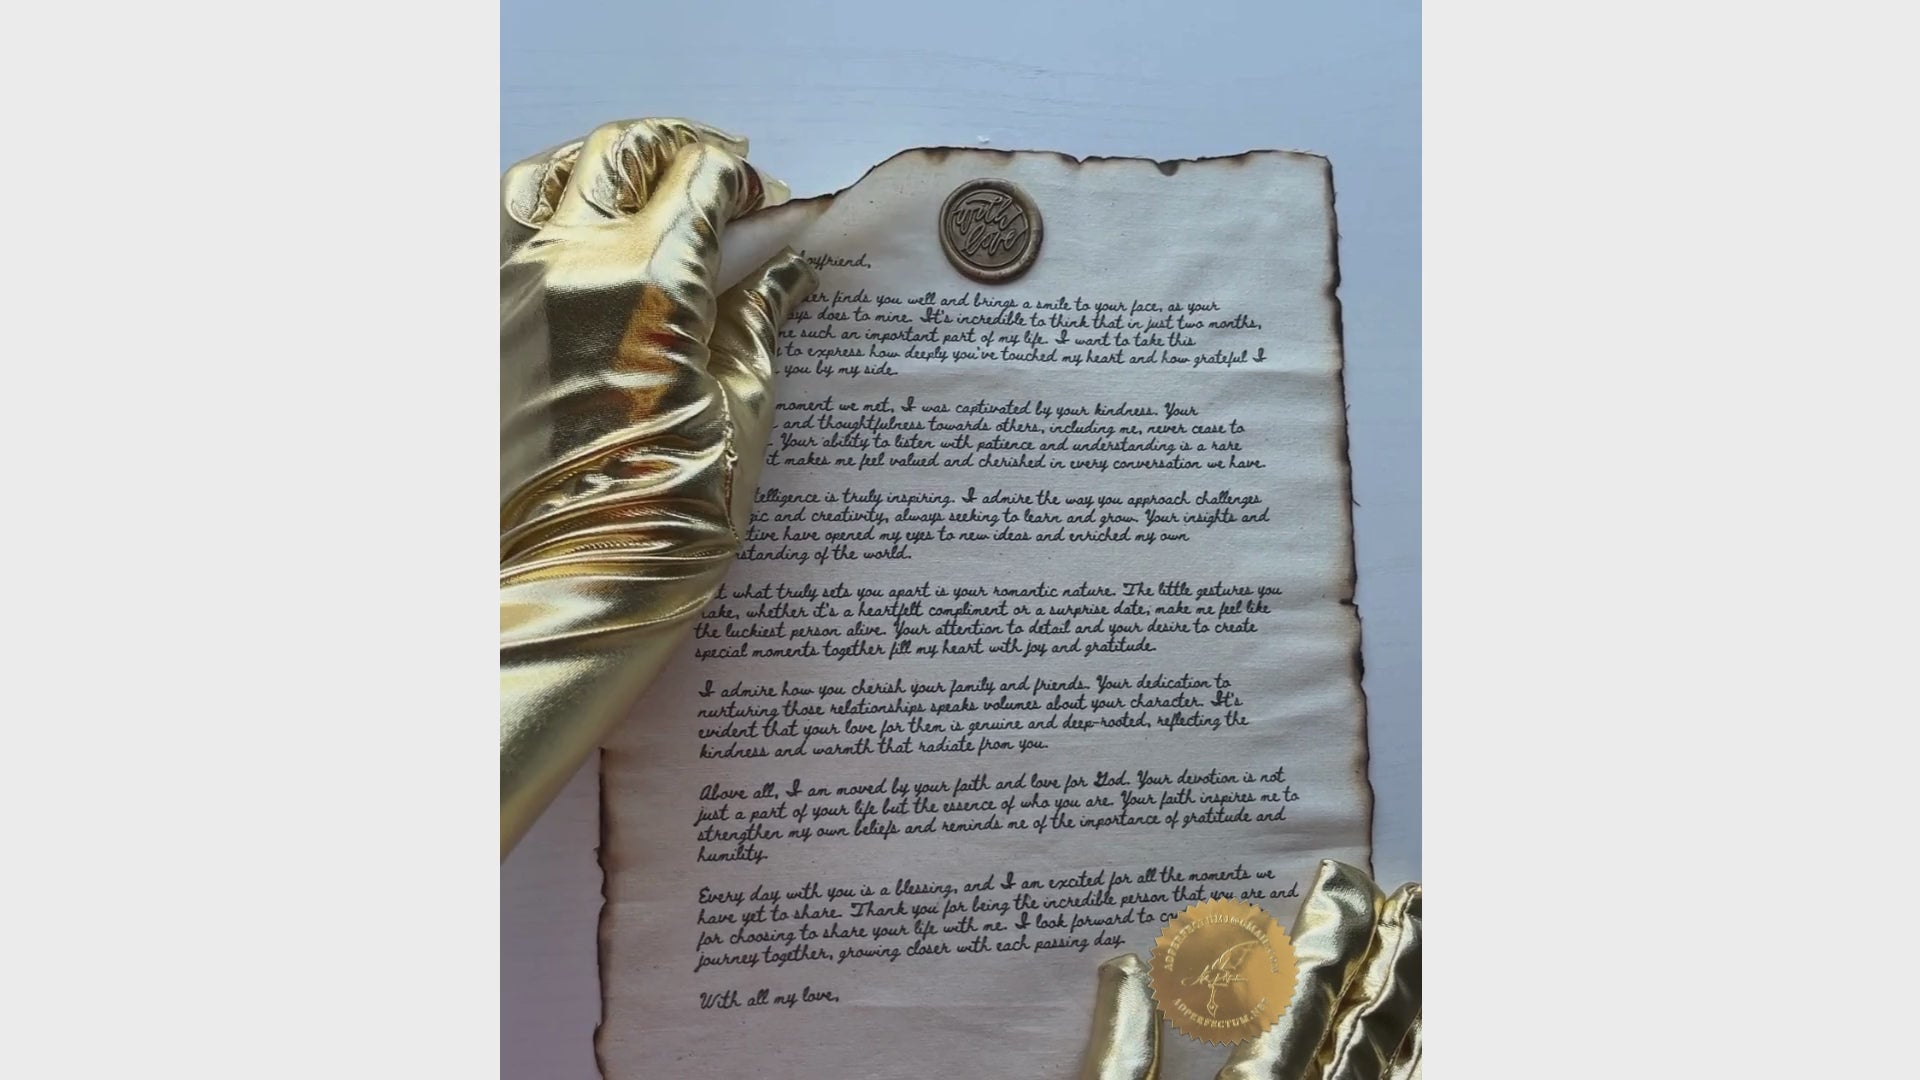 with
love
boyfriend,
finds you well and brings a smile to your face, as your
does to mine. It's incredible to think that in just two months,
such an important part of my life. I want to take this
to express how deeply you've touched my heart and how grateful I
you by my side.
moment we met, I was captivated by your kindness. Your
and thoughtfulness towards others, including me, never cease to
Your ability to listen with patience and understanding is a rare
it makes me feel valued and cherished in every conversation we have.
telligence is truly inspiring. I admire the way you approach challenges
and creativity, always seeking to learn and grow. Your insights and
have opened my eyes to new ideas and enriched my own
standing of the world.
what truly sets you apart is your romantic nature. The little gestures you
make, whether it's a heartfelt compliment or a surprise date, make me feel like
the luckiest person alive. Your attention to detail and your desire to create
special moments together fill my heart with joy and gratitude.
I admire how you cherish your family and friends. Your dedication to
nurturing those relationships speaks volumes about your character. It's
evident that your love for them is genuine and deep-rooted, reflecting the
kindness and warmth that radiate from you.
Above all, I am moved by your faith and love for God. Your devotion is not
just a part of your life but the essence of who you are. Your faith inspires me to
strengthen my own beliefs and reminds me of the importance of gratitude and
humility.
Every day with you is a blessing, and I am excited for all the moments we
have yet to share. Thank you for being the incredible person that you are and
for choosing to share your life with me. I look forward to
journey together, growing closer with each passing day.
With all my love,
ADPERFECTUM.NET